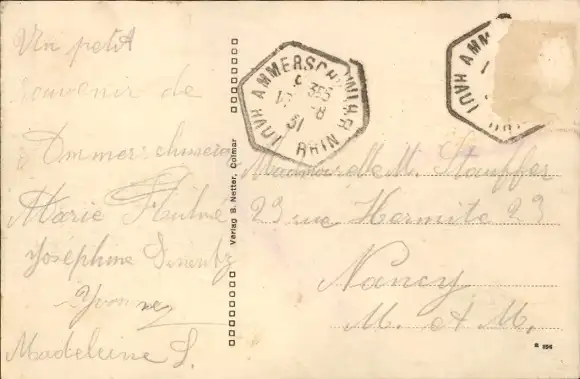 Un petit
souvenir de
Ammerschweier
Marie
Joséphine
Yvonne
Madeleine S.
Verlag B. Netter, Colmar
AMMERSCHWIHR
355
8
31
HAUT RHIN
AMM
HAUT RHIN
Mademoiselle M. Stauffer
23 rue Hermite 23
Nancy
M. et M.